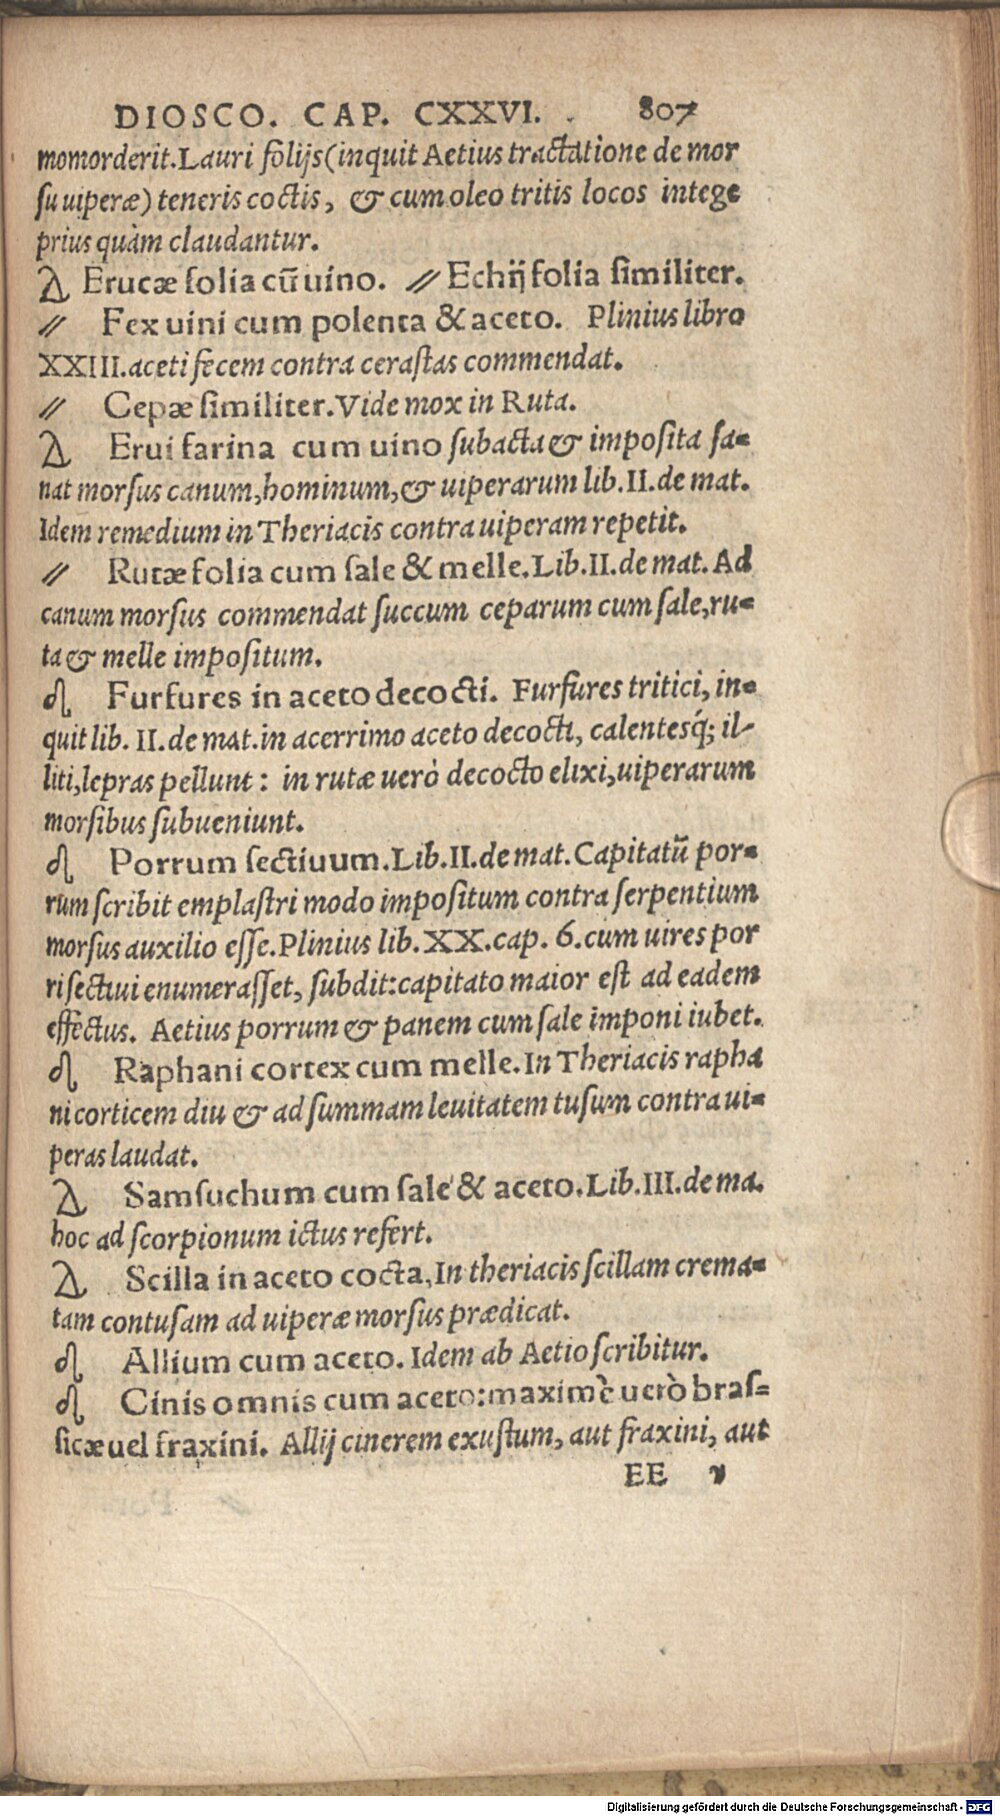 DIOSCO. CAP. CXXVI. 807
momorderit. Lauri folijs (inquit Aetius tractatione de mor
su uiperæ) teneris coctis, & cum oleo tritis locos intege
prius quàm claudantur.
Erucæ folia cũ uino. // Echij folia similiter.
// Fex uini cum polenta & aceto. Plinius libro
XXIII. aceti fecem contra cerastas commendat.
// Cepæ similiter. Vide mox in Ruta.
Erui farina cum uino subacta & imposita sa-
nat morsus canum, hominum, & uiperarum lib. II. de mat.
Idem remedium in Theriacis contra uiperam repetit.
// Rutæ folia cum sale & melle. Lib. II. de mat. Ad
canum morsus commendat succum ceparum cum sale, ru-
ta & melle impositum.
Furfures in aceto decocti. Furfures tritici, in-
quit lib. II. de mat. in acerrimo aceto decocti, calentesq́; il-
liti, lepras pellunt: in rutæ uerò decocto elixi, uiperarum
morsibus subueniunt.
Porrum sectiuum. Lib. II. de mat. Capitatũ por-
rum scribit emplastri modo impositum contra serpentium
morsus auxilio esse. Plinius lib. XX. cap. 6. cum uires por
ri sectiui enumerasset, subdit: capitato maior est ad eadem
effectus. Aetius porrum & panem cum sale imponi iubet.
Raphani cortex cum melle. In Theriacis rapha
ni corticem diu & ad summam leuitatem tusum contra ui-
peras laudat.
Samsuchum cum sale & aceto. Lib. III. de ma.
hoc ad scorpionum ictus refert.
Scilla in aceto cocta, In theriacis scillam crema-
tam contusam ad uiperæ morsus prædicat.
Allium cum aceto. Idem ab Aetio scribitur.
Cinis omnis cum aceto: maximè uerò bras-
sicæ uel fraxini. Allij cinerem exustum, aut fraxini, aut
EE v
Digitalisierung gefördert durch die Deutsche Forschungsgemeinschaft - DFG